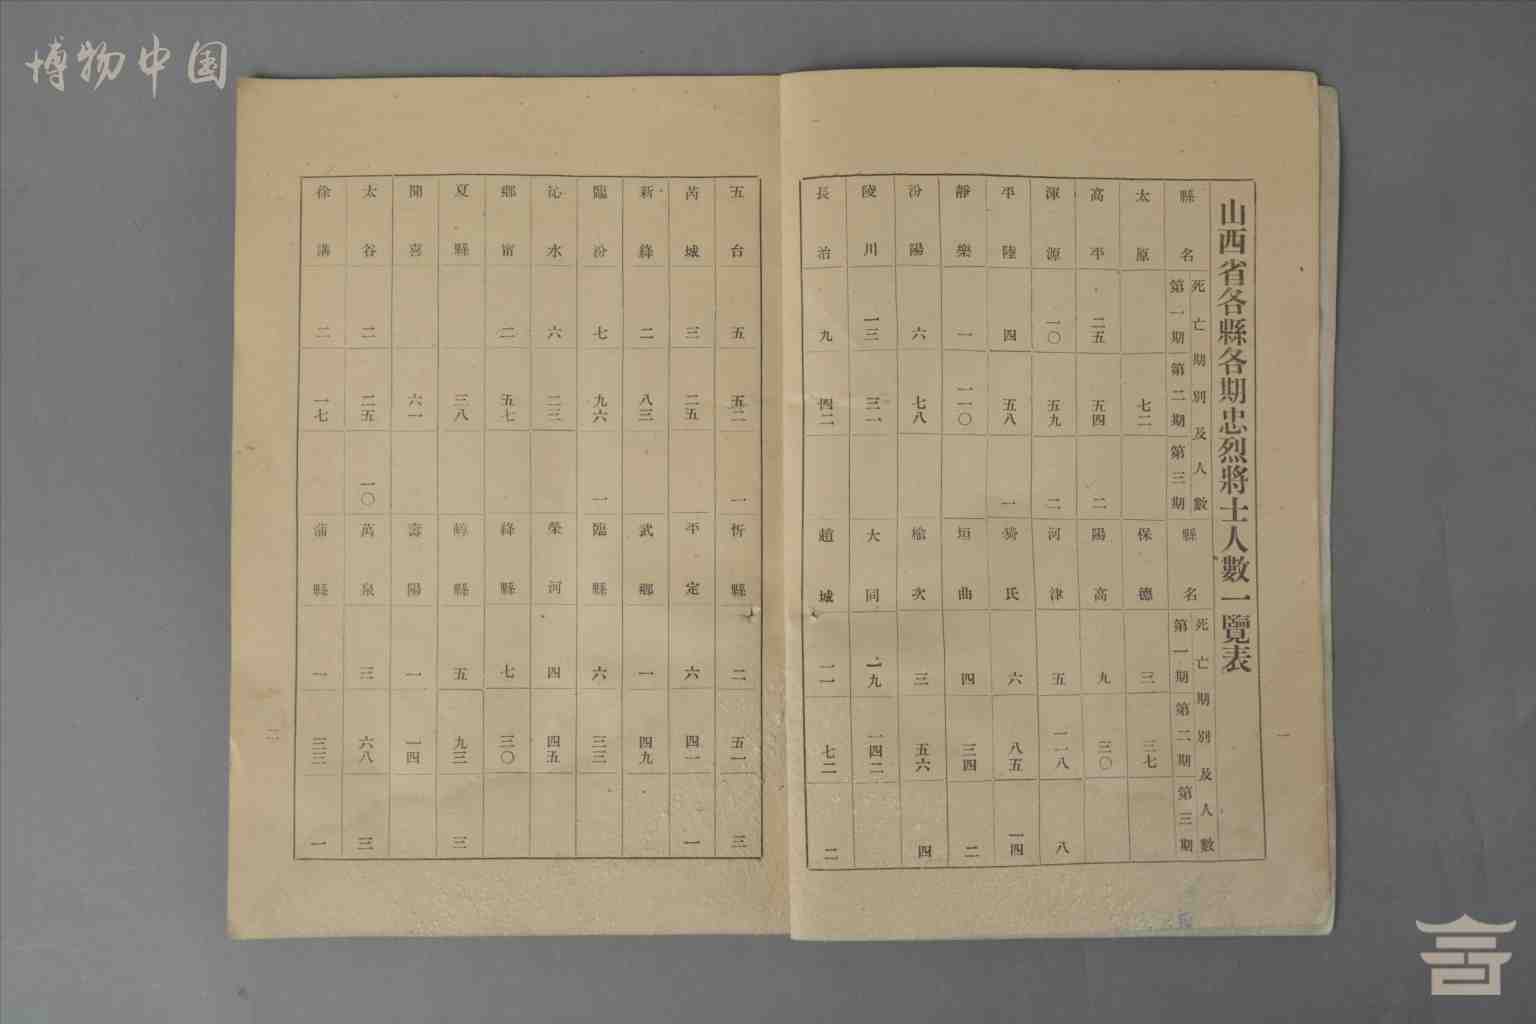 博物中国
山西省各縣各期忠烈將士人數一覽表
縣名 死亡期別及人數 第一期 第二期 第三期 縣名 死亡期別及人數 第一期 第二期 第三期
太原 七二 保德 三 三七
高平 二五 五四 二 陽高 九 三〇
渾源 一〇 五九 二 河津 五 一一八 八
平陸 四 五八 一 猗氏 六 八五 一四
靜樂 一 一一〇 垣曲 四 三四 二
汾陽 六 七八 榆次 三 五六 四
陵川 一三 三一 大同 一九 一四二
長治 九 四二 趙城 一一 七二 二
一
五台 五 五二 一 忻縣 二 五一 三
芮城 三 二五 平定 六 四一 一
新絳 二 八三 武鄉 一 四九
臨汾 七 九六 一 臨縣 六 三三
沁水 六 二三 榮河 四 四五
鄉甯 二 五七 絳縣 七 三〇
夏縣 三八 崞縣 五 九三 三
聞喜 六一 壽陽 一 一四
太谷 二 二五 一〇 萬泉 三 六八 三
徐溝 二 一七 蒲縣 一 一
二